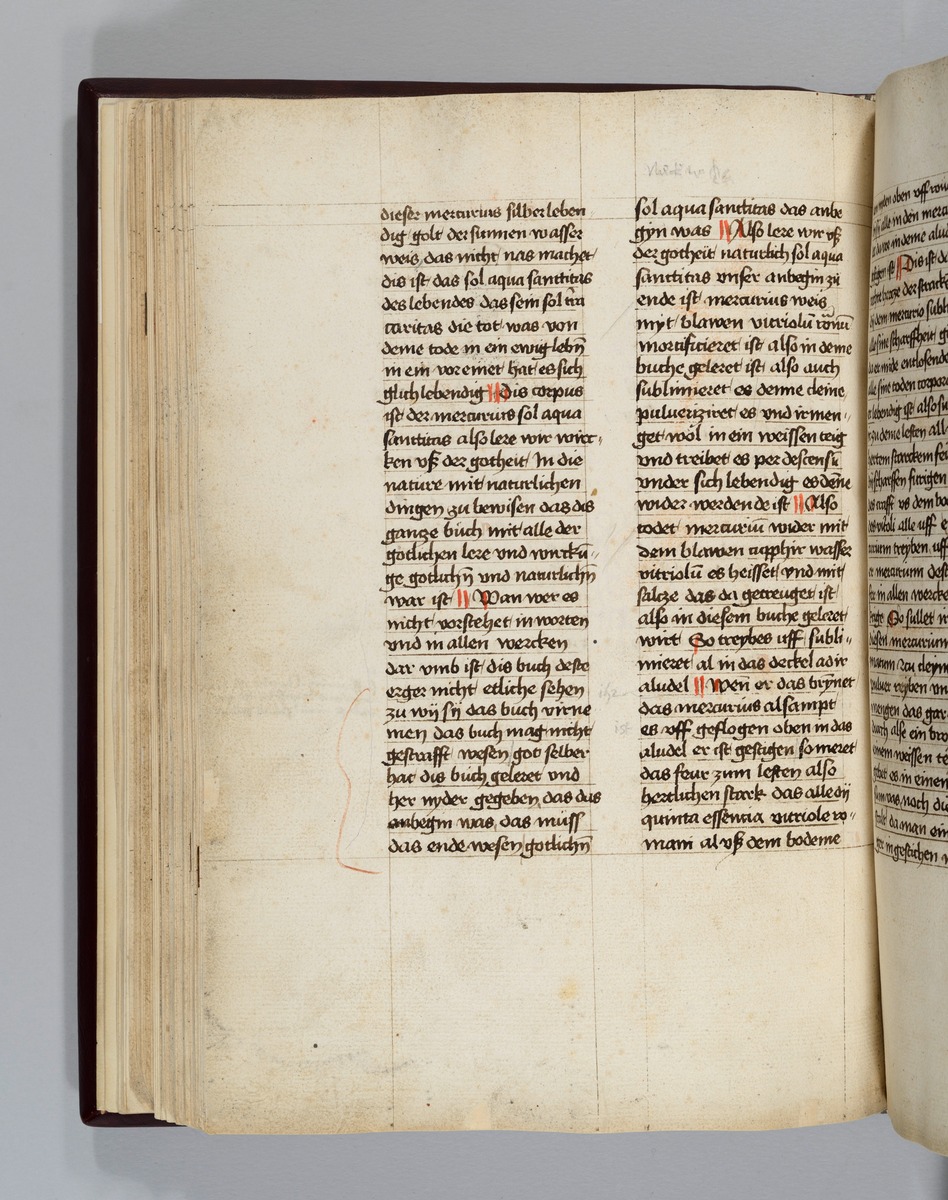 dieser mercurius silber leben
dig golt der sunnen wasser
weis das nicht nas machet
dis ist das sol aqua sanctitas
des lebendes das sem sol tra
caritas die tot was von
deme tode in ein ewig lebn̄
in ein vor einet hat es sich
glich lebendig Dis corpus
ist der mercurius sol aqua
sanctitas also lere wir wirc
ken vß der gotheit In die
nature mit naturlichen
dingen zu bewisen das dis
gantze bůch mit alle der
gotlichen lere vnd wircku̅
ge gotlichn̄ vnd naturlichn̄
war ist Wan wer es
nicht vorstehet in worten
vnd in allen wercken
dar vmb ist dis buch deste
erger nicht etliche sehen
zu wij sij das buch virne
men das buch mag nicht
gestrafft wesen got selber
hat dis bůch geleret vnd
her nyder gegeben das das
anbegin was das můss
das ende wesen gotlichn̄
sol aqua sanctitas das anbe
gyn was Also lere wir vß
der gotheit naturlich sol aqua
sanctitas vnser anbegin zů
ende ist mercurius weis
myt blawen vitriolu̅ roma̅u̅
mortificieret ist also in deme
buche geleret ist also auch
sublimieret es denne cleine
pulueriziret es vnd ir men
get wol in ein weissen teig
vnd treibet es per descensu̅
vnder sich lebendig es den̅e
wider werdende ist Also
todet mercuriu̅ wider mit
dem blawen cupphir wasser
vitriolu̅ es heisset vnd mit
saltze das da getreuget ist
also in diesem buche geleret
wirt So treybes uff subli
mieret al in das deckel adir
aludel Wen̅ er das brynet
das mercurius alsampt
es vff geflogen oben in das
aludel er ist gestigen so meret
das feur zum lesten also
hertlichen starck das alle dij
quinta essentia vitriole ro
mani al vß dem bodeme